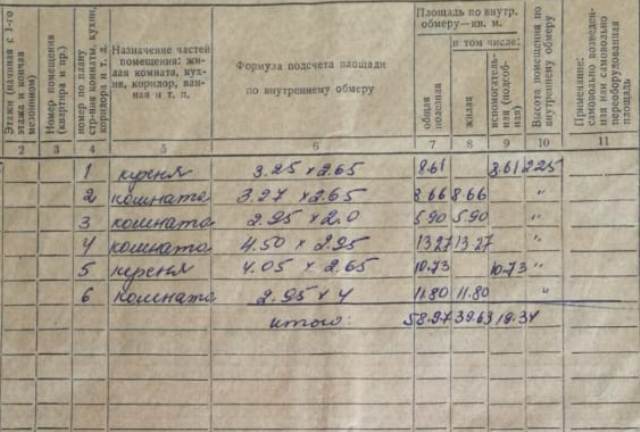 Этажи (начиная с 1-го этажа и кончая мезонином)
Номер помещения (квартира и пр.)
номер по плану стр-ния комнаты, кухни, коридора и т. д.
Назначение частей помещения: жилая комната, кухня, коридор, ванная и т. п.
Формула подсчета площади
по внутреннему обмеру
Площадь по внутр. обмеру—кв. м.
в том числе:
общая полезная
жилая
вспомогательная (подсобная)
Высота помещения по внутреннему обмеру
Примечание: самовольно возведенная или самовольно переоборудованная площадь
2 3 4 5 6 7 8 9 10 11
1 кухня 3.25 × 2.65 8.61 8.61 2.25
2 комната 3.27 × 2.65 8.66 8.66 "
3 комната 2.95 × 2.0 5.90 5.90 "
4 комната 4.50 × 2.95 13.27 13.27 "
5 кухня 4.05 × 2.65 10.73 10.73 "
6 комната 2.95 × 4 11.80 11.80 "
итого: 58.97 39.63 19.34